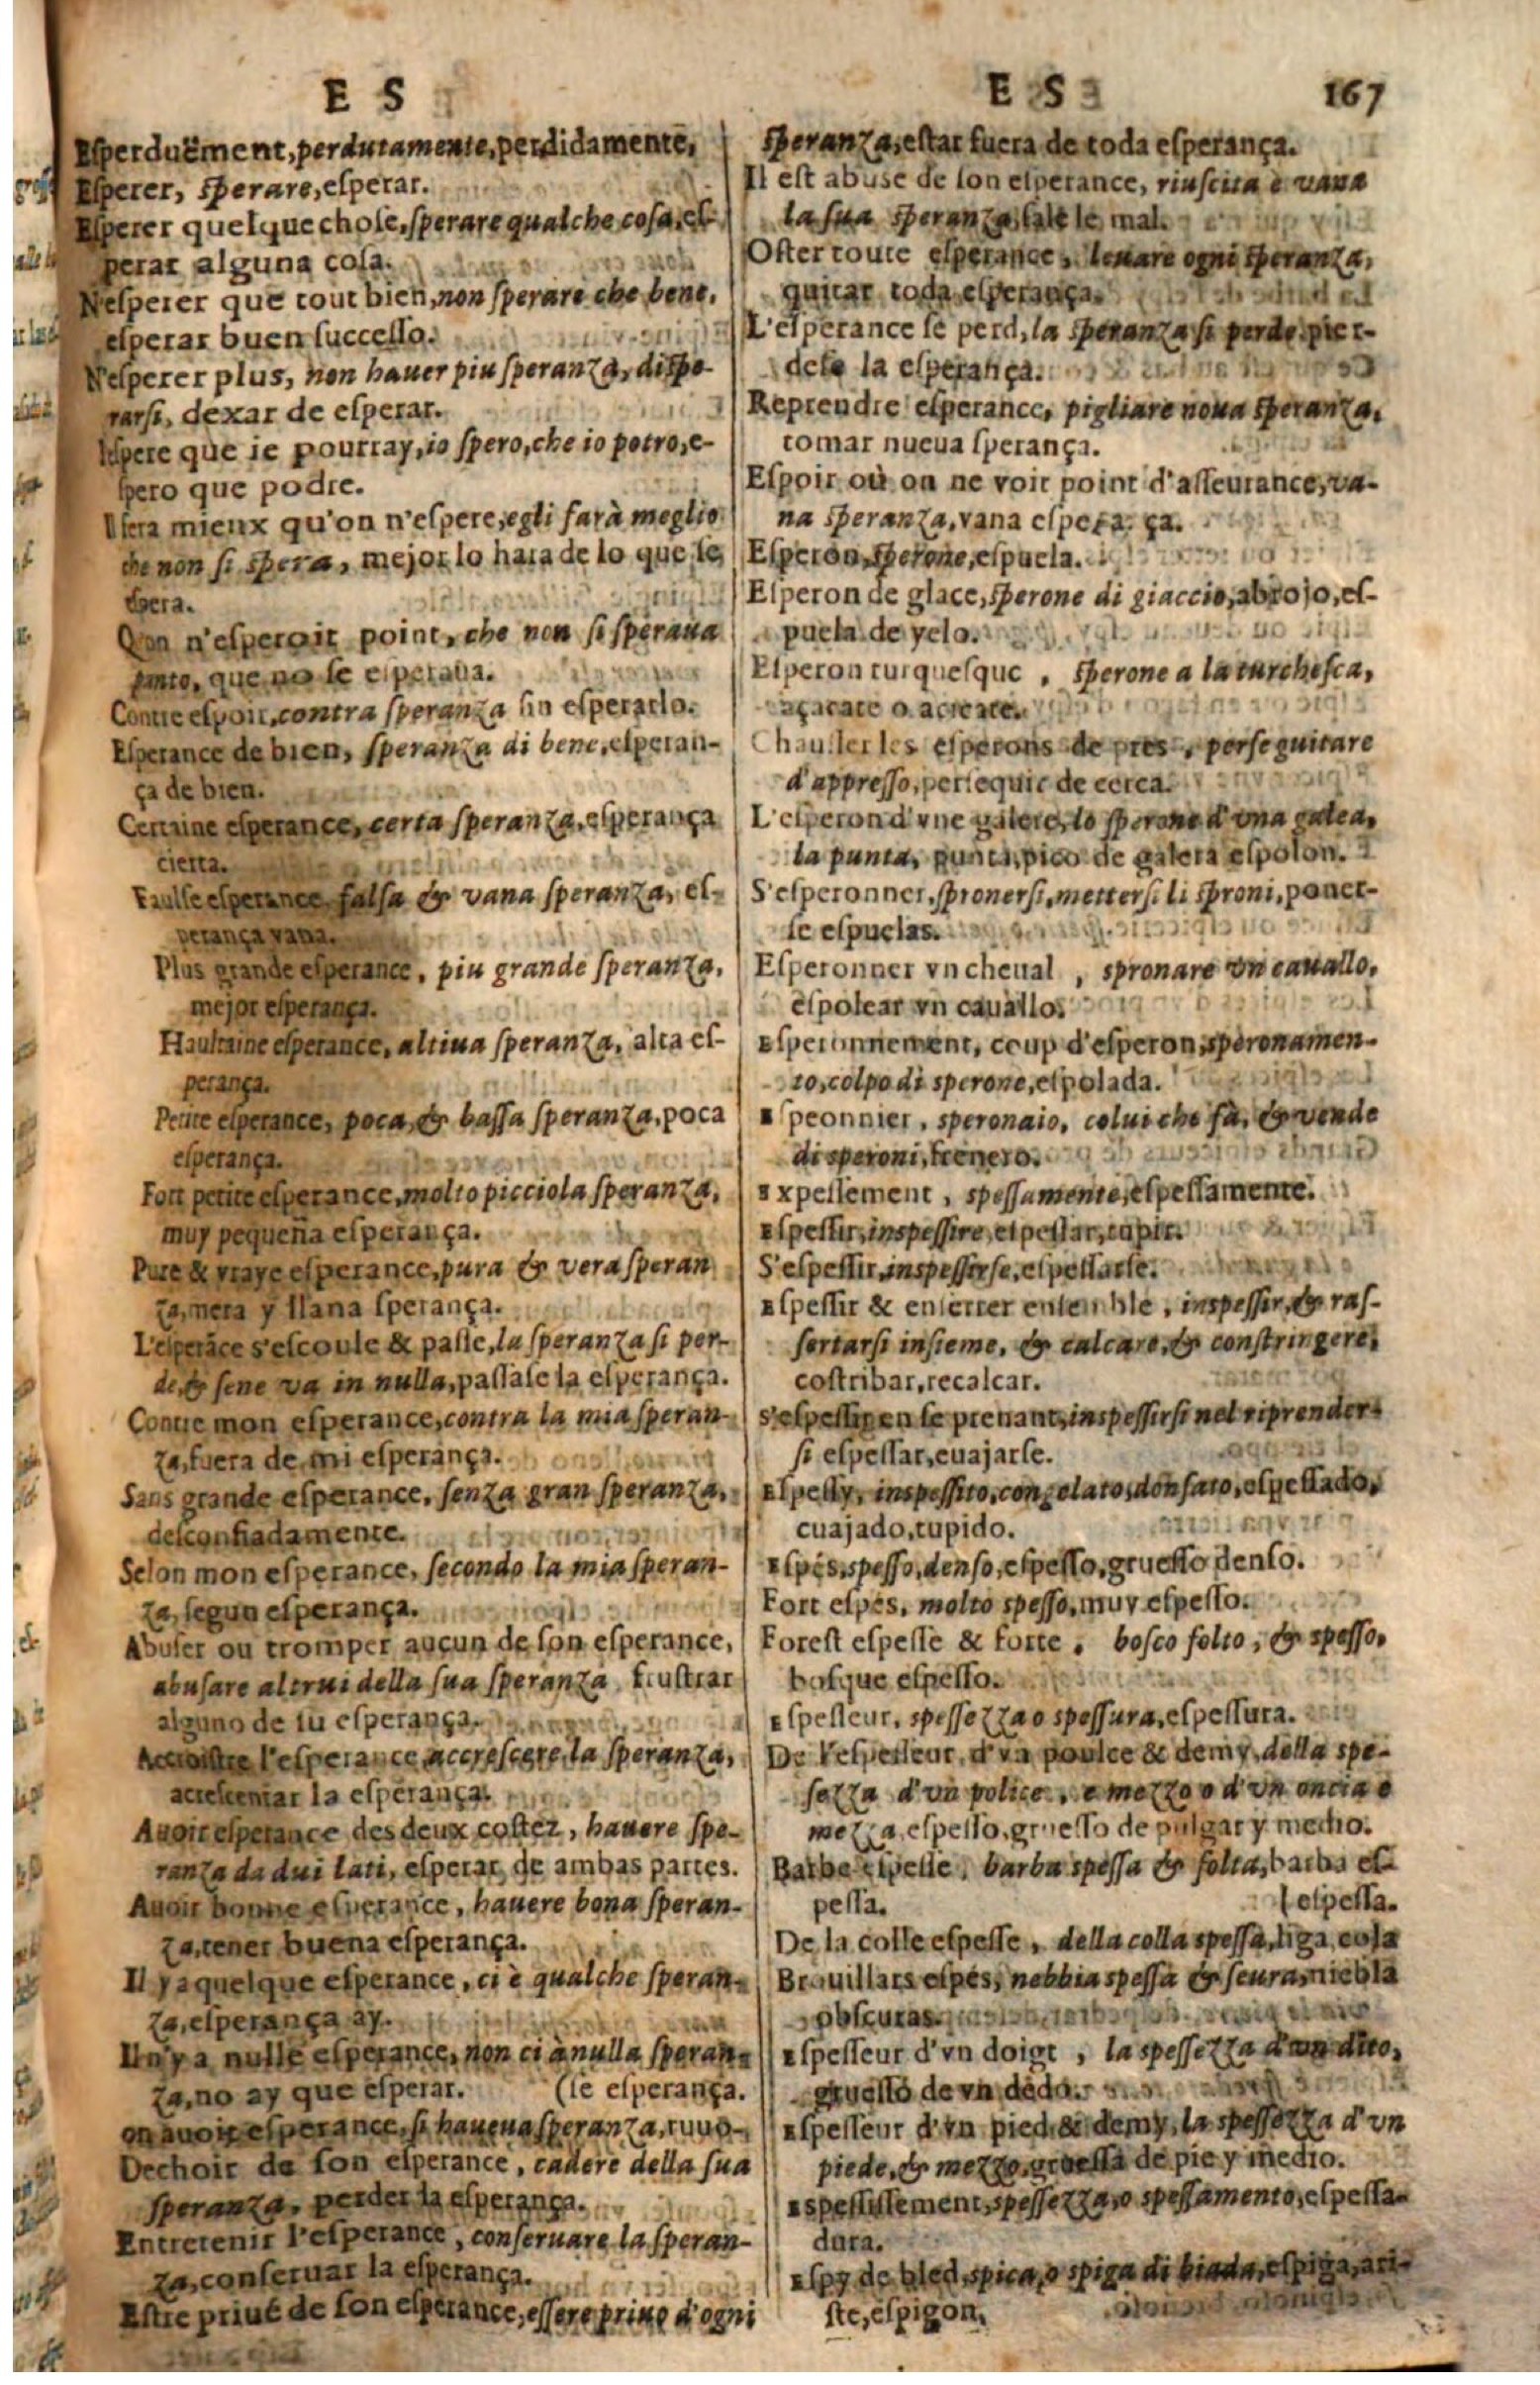 E S
E S
167
Eſperduëment, perdutamente, perdidamente,
Eſperer, ſperare, eſperar.
Eſperer quelque choſe, ſperare qualche coſa, eſ-
perar alguna coſa.
N'eſperer que tout bien, non ſperare che bene,
eſperar buen ſucceſſo.
N'eſperer plus, non hauer piu ſperanza, diſpe-
rarſi, dexar de eſperar.
I'eſpere que ie pourray, io ſpero, che io potro, e-
ſpero que podre.
Il fera mieux qu'on n'eſpere, egli farà meglio
che non ſi ſpera, mejor lo hara de lo que ſe
eſpera.
Qon n'eſperoit point, che non ſi ſperaua
punto, que no ſe eſperaua.
Contre eſpoir, contra ſperanza ſin eſperarlo.
Eſperance de bien, ſperanza di bene, eſperan-
ça de bien.
Certaine eſperance, certa ſperanza, eſperança
cierta.
Faulſe eſperance, falſa & vana ſperanza, eſ-
perança vana.
Plus grande eſperance, piu grande ſperanza,
mejor eſperança.
Haultaine eſperance, altiua ſperanza, alta eſ-
perança.
Petite eſperance, poca, & baſſa ſperanza, poca
eſperança.
Fort petite eſperance, molto picciola ſperanza,
muy pequeña eſperança.
Pure & vraye eſperance, pura & vera ſperan
za, mera y llana ſperança.
L'eſperāce s'eſcoule & paſſe, la ſperanza ſi per-
de, & ſene va in nulla, paſſaſe la eſperança.
Contre mon eſperance, contra la mia ſperan-
za, fuera de mi eſperança.
Sans grande eſperance, ſenza gran ſperanza,
deſconfiadamente.
Selon mon eſperance, ſecondo la mia ſperan-
za, ſegun eſperança.
Abuſer ou tromper aucun de ſon eſperance,
abuſare altrui della ſua ſperanza, fruſtrar
alguno de ſu eſperança.
Accroiſtre l'eſperance, accreſcere la ſperanza,
acreſcentar la eſperança.
Auoir eſperance des deux coſtez, hauere ſpe-
ranza da dui lati, eſperar de ambas partes.
Auoir bonne eſperance, hauere bona ſperan-
za, tener buena eſperança.
Il y a quelque eſperance, ci è qualche ſperan-
za, eſperança ay.
Il n'y a nulle eſperance, non ci à nulla ſperan-
za, no ay que eſperar. (ſe eſperança.
on auoit eſperance, ſi haueua ſperanza, tuuo-
Dechoir de ſon eſperance, cadere della ſua
ſperanza, perder la eſperança.
Entretenir l'eſperance, conſeruare la ſperan-
za, conſeruar la eſperança.
Eſtre priué de ſon eſperance, eſſere priuo d'ogni
ſperanza, eſtar fuera de toda eſperança.
Il eſt abuse de ſon eſperance, riuſcita è vana
la ſua ſperanza, ſale le mal.
Oſter toute eſperance, leuare ogni ſperanza,
quitar toda eſperança.
L'eſperance ſe perd, la ſperanza ſi perde, pier-
deſe la eſperança.
Reprendre eſperance, pigliare noua ſperanza,
tomar nueua ſperança.
Eſpoir où on ne voit point d'aſſeurance, va-
na ſperanza, vana eſperança.
Eſperon, ſperone, eſpuela.
Eſperon de glace, ſperone di giaccio, abrojo, eſ-
puela de yelo.
Eſperon turqueſque, ſperone a la turcheſca,
açacate o acicate.
Chauſſer les eſperons de pres, perſeguitare
d'appreſſo, perſequir de cerca.
L'eſperon d'vne galere, lo ſperone d'vna galea,
la punta, punta, pico de galera eſpolon.
S'eſperonner, ſpronerſi, metterſi li ſproni, poner-
ſe eſpuelas.
Eſperonner vn cheual, spronare vn cauallo,
eſpolear vn cauallo.
Eſperonnement, coup d'eſperon, speronamen-
to, colpo di sperone, eſpolada.
Eſpeonnier, speronaio, colui che fà, & vende
di speroni, frenero.
Expeſſement, speſſamente, eſpeſſamente.
Eſpeſſir, inspeſſire, eſpeſſar, tupir.
S'eſpeſſir, inspeſſirſe, eſpeſſarſe.
Eſpeſſir & enſerrer enſemble, inspeſſir, & raſ-
ſertarſi inſieme, & calcare, & conſtringere,
coſtribar, recalcar.
s'eſpeſſir en ſe prenant, inspeſſirſi nel riprender-
ſi eſpeſſar, cuajarſe.
Eſpeſſy, inspeſſito, congelato, donſato, eſpeſſado,
cuajado, tupido.
Eſpés, speſſo, denſo, eſpeſſo, grueſſo denſo.
Fort eſpés, molto speſſo, muy eſpeſſo.
Foreſt eſpeſſe & forte, boſco folto, & speſſo,
boſque eſpeſſo.
Eſpeſſeur, speſſezza o speſſura, eſpeſſura.
De l'eſpeſſeur d'vn poulce & demy, della spe-
ſezza d'vn police, e mezzo o d'vn oncia e
mezza, eſpeſſo, grueſſo de pulgar y medio.
Barbe eſpeſſe, barba speſſa & folta, barba eſ-
peſſa. (eſpeſſa.
De la colle eſpeſſe, della colla speſſa, liga, cola
Brouillars eſpés, nebbia speſſa & ſcura, niebla
obſcuras.
Eſpeſſeur d'vn doigt, la speſſezza d'vn dito,
grueſſo de vn dedo.
Eſpeſſeur d'vn pied & demy, la speſſezza d'vn
piede, & mezzo, grueſſa de pie y medio.
Eſpeſſiſſement, speſſezza, o speſſamento, eſpeſſa-
dura.
Eſpy de bled, spica, o spiga di biada, eſpiga, ari-
ſte, eſpigon.